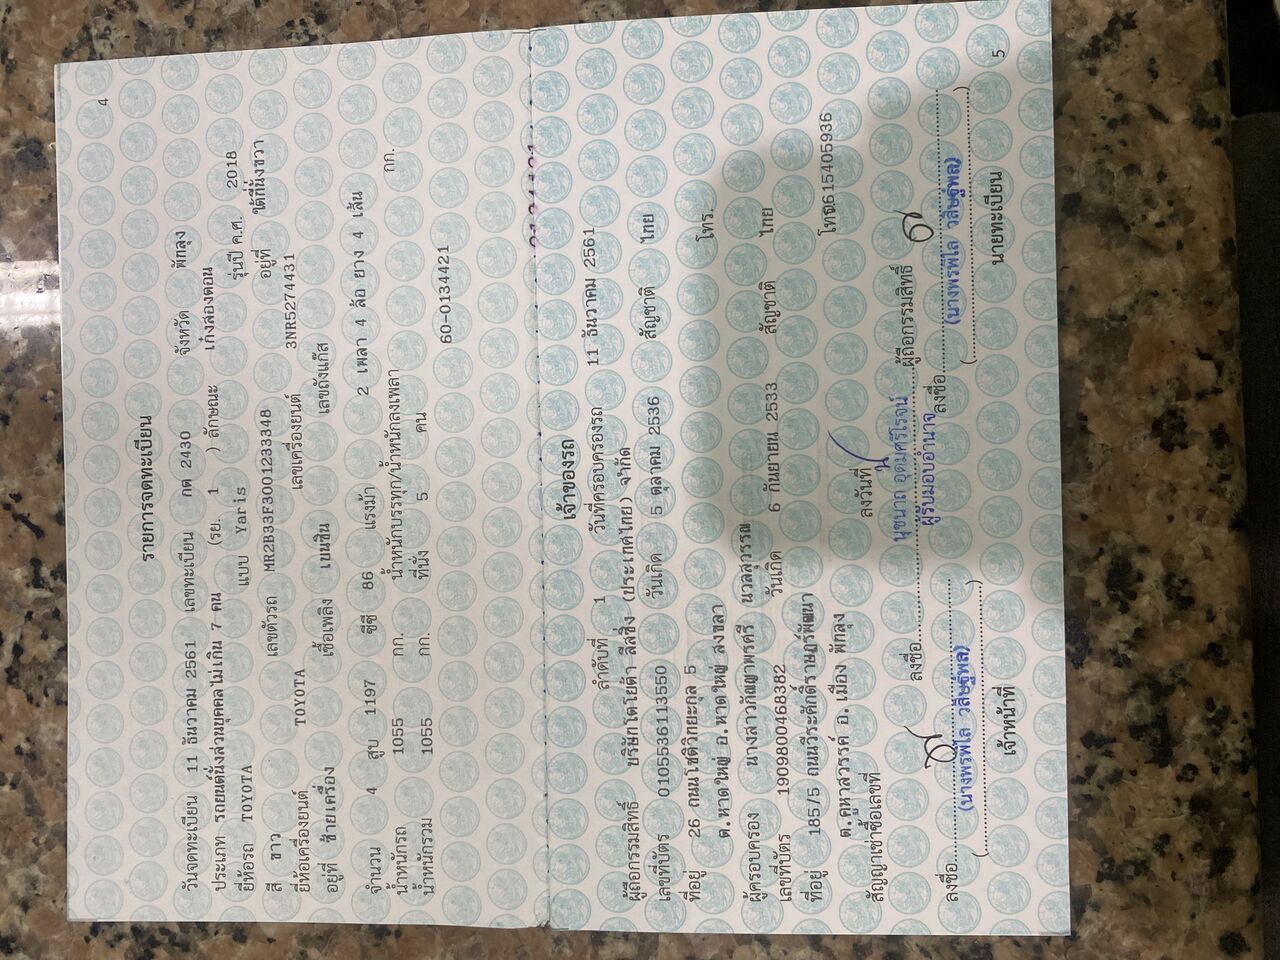 4
รายการจดทะเบียน
วันจดทะเบียน 11 ธันวาคม 2561 เลขทะเบียน กต 2430 จังหวัด พัทลุง
ประเภท รถยนต์นั่งส่วนบุคคลไม่เกิน 7 คน (รย. 1 ) ลักษณะ เก๋งสองตอน
ยี่ห้อรถ TOYOTA แบบ Yaris รุ่นปี ค.ศ. 2018
สี ขาว เลขตัวรถ MR2B33F3001233348 อยู่ที่ ใต้ที่นั่งขวา
ยี่ห้อเครื่องยนต์ TOYOTA เลขเครื่องยนต์ 3NR5274431
อยู่ที่ ซ้ายเครื่อง เชื้อเพลิง เบนซิน เลขถังแก๊ส
จำนวน 4 สูบ 1197 ซีซี 86 แรงม้า 2 เพลา 4 ล้อ ยาง 4 เส้น
น้ำหนักรถ 1055 กก. น้ำหนักบรรทุก/น้ำหนักลงเพลา กก.
น้ำหนักรวม 1055 กก. ที่นั่ง 5 คน
60-0134421
เจ้าของรถ
ลำดับที่ 1 วันที่ครอบครองรถ 11 ธันวาคม 2561
ผู้ถือกรรมสิทธิ์ บริษัทโตโยต้า ลีสซิ่ง (ประเทศไทย) จำกัด
เลขที่บัตร 0105536113550 วันเกิด 5 ตุลาคม 2536 สัญชาติ ไทย
ที่อยู่ 26 ถนนโชติวิทยะกุล 5 โทร.
ต.หาดใหญ่ อ.หาดใหญ่ สงขลา
ผู้ครอบครอง นางสาวกัณญาพรศรี นวลสุวรรณ
เลขที่บัตร 1909800468382 วันเกิด 6 กันยายน 2533 สัญชาติ ไทย
ที่อยู่ 185/5 ถนนวีระศักดิ์ราษฎร์พัฒนา
ต.คูหาสวรรค์ อ.เมือง พัทลุง โทร.0615405936
สัญญาเช่าซื้อเลขที่ ลงวันที่
ลงชื่อ นุชนาถ อุดมศรีโรจน์ ผู้ถือกรรมสิทธิ์
ผู้รับมอบอำนาจ
ลงชื่อ ลงชื่อ
(นางพรพิไล วสิษฐ์พล) (นางพรพิไล วสิษฐ์พล)
เจ้าหน้าที่ นายทะเบียน
5